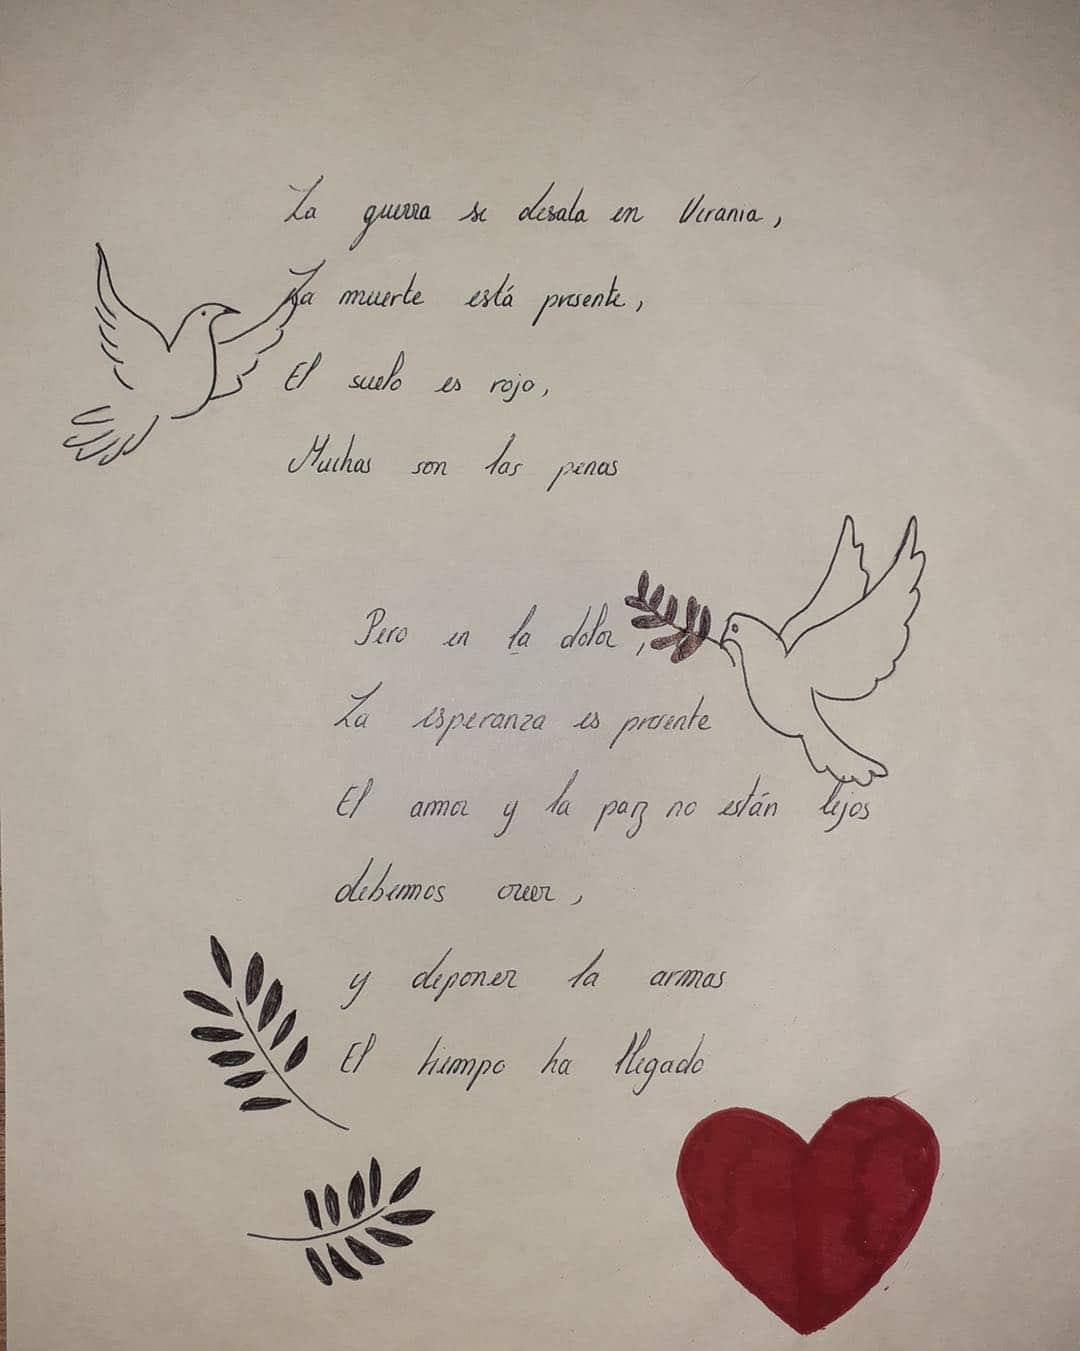 La guerra se desala en Ucrania,
La muerte está presente,
El suelo es rojo,
Muchas son las penas
Pero en la dolor,
La esperanza es presente
El amor y la paz no están lejos
debemos creer,
y deponer la armas
El tiempo ha llegado